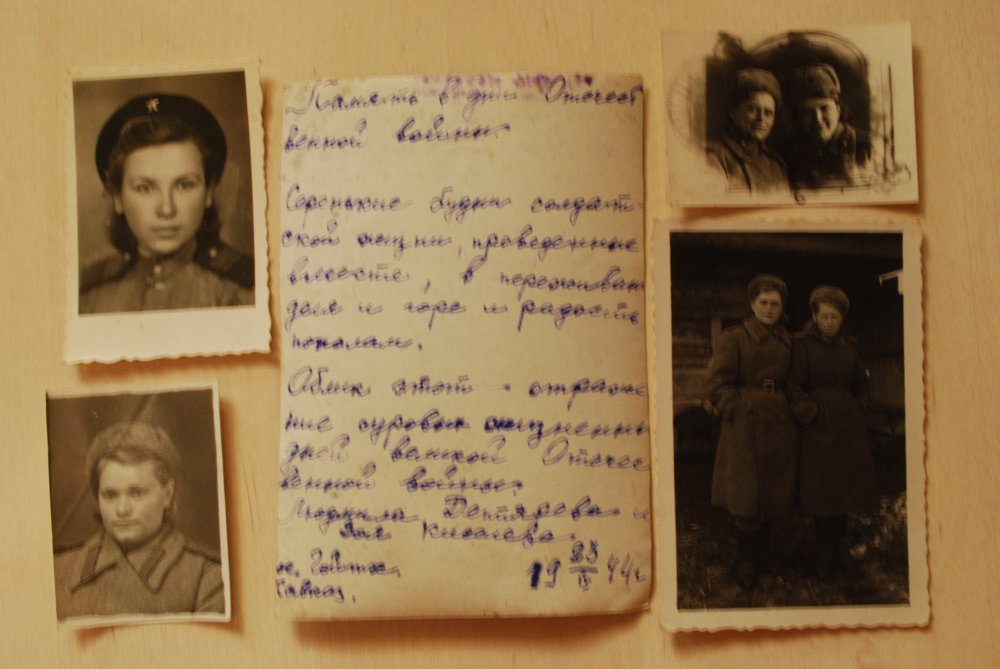 Память в дни Отечест
венной войны.
Серенькие будни солдат-
ской жизни, проведенные
вместе, в переживан
и горе и радость
пополам.
Облик этот - отраже
ние суровых жизненн
дней великой Отечес
венной войны.
Людмила Дегтярева и
Зоя Киселева.
ос. Гойтх
Кавказ.
19 23/II 44г